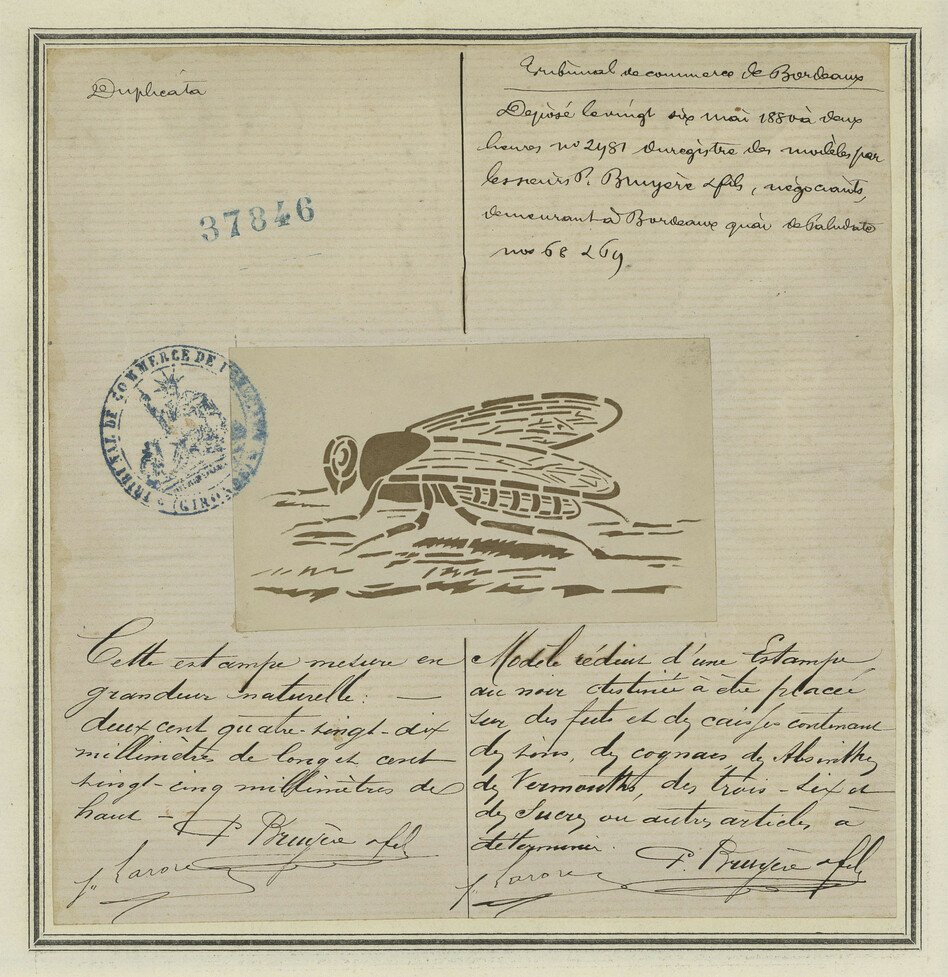 Duplicata
37846
Tribunal de commerce de Bordeaux
Déposé le vingt six mai 1880 à deux
heures no 2481 du registre des modèles par
les sieurs P. Bruyère & fils, négociants,
demeurant à Bordeaux quai de Paludate
nos 68 & 69
TRIBUNAL DE COMMERCE DE
GIRONDE
Cette estampe mesure en
grandeur naturelle : —
deux cent quatre-vingt-dix
millimètres de long et cent
vingt-cinq millimètres de
haut —
P. Bruyère & fils
Modèle réduit d'une Estampe
au noir destinée à être placée
sur des futs et des caisses contenant
des vins, des cognacs, des Absinthes,
des Vermouths, des trois-six et
des Sucres ou autres articles à
déterminer.
P. Bruyère & fils